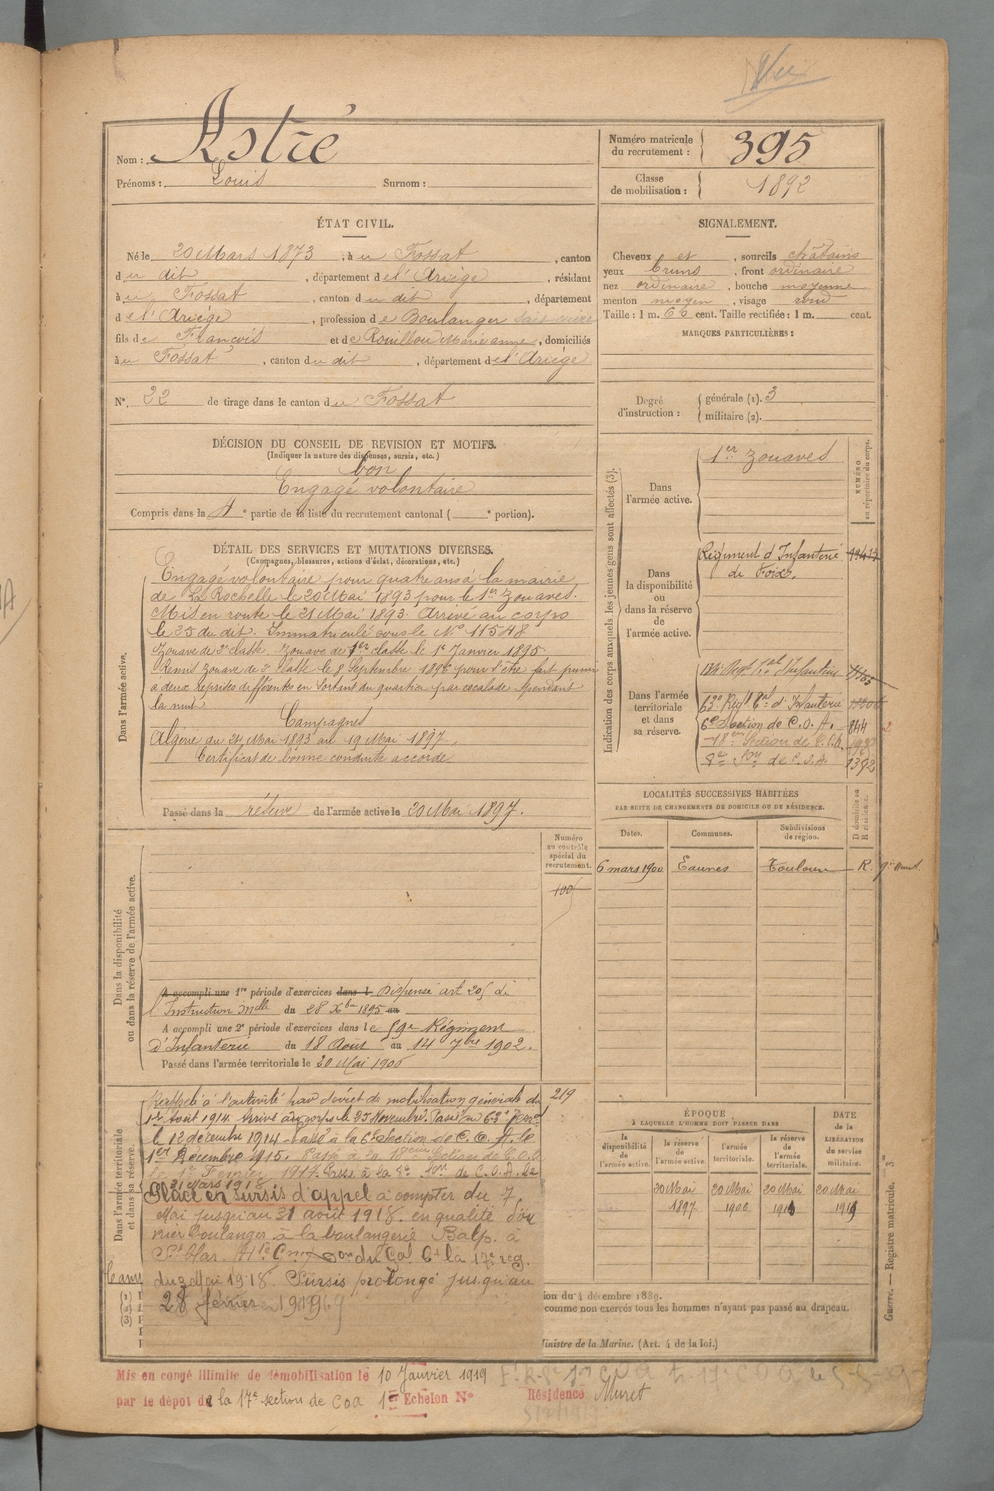 Vu
Nom : Astré
Prénoms : Louis Surnom :
Numéro matricule du recrutement : 395
Classe de mobilisation : 1892
ÉTAT CIVIL.
Né le 20 Mars 1873, à u Fossat, canton
du dit, département de l'Ariège, résidant
à u Fossat, canton du dit, département
de l'Ariège, profession de Boulanger
fils de François et de Rouillou Marie anne, domiciliés
à u Fossat, canton du dit, département de l'Ariège
N° 32 de tirage dans le canton du Fossat
SIGNALEMENT.
Cheveux et, sourcils châtains
yeux bruns, front ordinaire
nez ordinaire, bouche moyenne
menton moyen, visage rond
Taille : 1 m. 66 cent. Taille rectifiée : 1 m. cent.
MARQUES PARTICULIÈRES :
Degré d'instruction : générale (1). 3
militaire (2).
DÉCISION DU CONSEIL DE REVISION ET MOTIFS.
(Indiquer la nature des dispenses, sursis, etc.)
bon
Engagé volontaire
Compris dans la 4e partie de la liste du recrutement cantonal ( e portion).
DÉTAIL DES SERVICES ET MUTATIONS DIVERSES.
(Campagnes, blessures, actions d'éclat, décorations, etc.)
Dans l'armée active.
Engagé volontaire pour quatre ans à la mairie
de La Rochelle le 20 Mai 1893 pour le 1er Zouaves.
Mis en route le 21 Mai 1893. Arrivé au corps
le 25 du dit. Immatriculé sous le N° 11548
Zouave de 2e classe. Zouave de 1ère classe le 1er Janvier 1895.
Remis Zouave de 2e classe le 8 Septembre 1896 pour s'être fait punir
à deux reprises différentes en sortant du quartier par escalade pendant
la nuit
Campagnes
Algérie du 24 Mai 1893 au 19 Mai 1897.
Certificat de bonne conduite accordé
Passé dans la réserve de l'armée active le 20 Mai 1897.
Indication des corps auxquels les jeunes gens sont affectés (3).
NUMÉRO au répertoire du corps.
Dans l'armée active.
1er Zouaves
Dans la disponibilité ou dans la réserve de l'armée active.
Régiment d'Infanterie
de Foix.
Dans l'armée territoriale et dans sa réserve.
134e Régt Tal d'Infanterie
63e Régt Tal d'Infanterie
6e Section de C. O. A. 844
18ème Section de C.O.A.
8e Son de C.O.A 1392
LOCALITÉS SUCCESSIVES HABITÉES
PAR SUITE DE CHANGEMENTS DE DOMICILE OU DE RÉSIDENCE.
Dates. Communes. Subdivisions de région. D domicile ou R résidence.
6 mars 1900 Eaunes Toulouse R.
Dans la disponibilité ou dans la réserve de l'armée active.
Numéro au contrôle spécial du recrutement.
100
A accompli une 1re période d'exercices dans l Dispensé art 20 de
l'Instruction Melle du 28 Xbre 1895 au
A accompli une 2e période d'exercices dans le 59e Régiment
d'Infanterie du 18 Août au 14 7bre 1902.
Passé dans l'armée territoriale le 20 Mai 1906
Dans l'armée territoriale et dans sa réserve.
219
Rappelé à l'activité par décret de mobilisation générale du
1er Août 1914. Arrivé au corps le 25 Novembre. Passé au 63e
le 12 décembre 1914. Passé à la 6e Section de C.O.A. le
1er Décembre 1915. Passé à la 18ème Section de C.O.A
le 1er Février 1917. Passé à la 8e Son de C.O.A le
21 Mars 1918
Placé en sursis d'appel à compter du 7
Mai jusqu'au 31 août 1918. en qualité d'ou
vrier boulanger à la boulangerie Balp. à
du 3 Mai 1918. Sursis prolongé jusqu'au
28 février 1919
Cam
(1)
(2)
(3)
ÉPOQUE
À LAQUELLE L'HOMME DOIT PASSER DANS
la disponibilité de l'armée active. la réserve de l'armée active. l'armée territoriale. la réserve de l'armée territoriale.
DATE de la LIBÉRATION du service militaire.
20 Mai 1897 20 Mai 1906 20 Mai 20 Mai 1919
ion du 4 décembre 1889.
comme non exercés tous les hommes n'ayant pas passé au drapeau.
Ministre de la Marine. (Art. 4 de la loi.)
Guerre. — Registre matricule.
Mis en congé illimité de démobilisation le 10 Janvier 1919
par le dépôt de la 17e section de COA 1er Echelon N° Résidence Muret